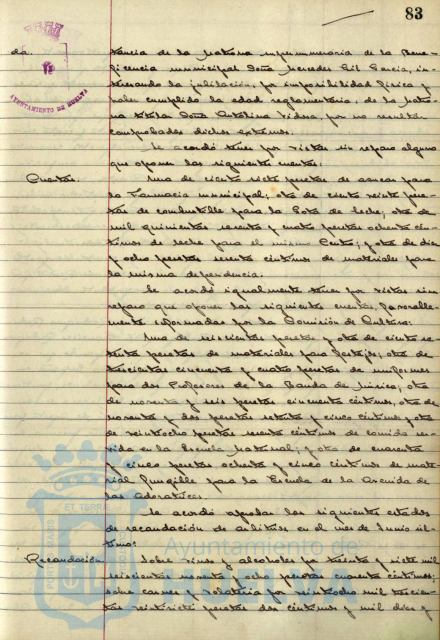 83
da.
tancia de la Matrona supernumeraria de la Bene-
ficencia municipal Doña Mercedes Gil Garcia, in-
teresando la jubilación, por imposibilidad física y
haber cumplido la edad reglamentaria, de la Matro-
na titular Doña Catalina Vidosa, por no resultar
comprobados dichos extremos.
AYUNTAMIENTO DE HUELVA
Se acordó tener por vistas sin reparo alguno
que oponer las siguientes cuentas:
Cuentas.
Una de ciento siete pesetas de azucar para
la Farmacia municipal; otra de ciento veinte pese-
tas de combustible para la Gota de leche; otra de
mil quinientas sesenta y cuatro pesetas ochenta cén-
timos de leche para el mismo Centro; y otra de diez
y ocho pesetas sesenta céntimos de materiales para
la misma dependencia.
Se acordó igualmente tener por vistas sin
reparo que oponer las siguientes cuentas, favorable-
mente informadas por la Comisión de Cultura:
Una de seiscientas pesetas y otra de ciento se-
tenta pesetas de materiales para festejos; otra de
trescientas cincuenta y cuatro pesetas de uniformes
para dos Profesores de la Banda de Música; otra
de noventa y seis pesetas cincuenta céntimos, otra de
noventa y dos pesetas setenta y cinco céntimos y otra
de veintiocho pesetas sesenta céntimos de comida ser-
vida en la Escuela Maternal; y otra de cuarenta
y cinco pesetas ochenta y cinco céntimos de mate-
rial fungible para la Escuela de la Avenida de
las Adoratrices.
Se acordó aprobar los siguientes estados
de recaudación de arbitrios en el mes de Junio úl-
timo:
Recaudación
Sobre vinos y alcoholes por treinta y siete mil
seiscientas noventa y ocho pesetas cuarenta céntimos;
sobre carnes y volatería por veintiocho mil trescien-
tas veintisiete pesetas dos céntimos y mil diez y
Ayuntamiento de
HUELVA